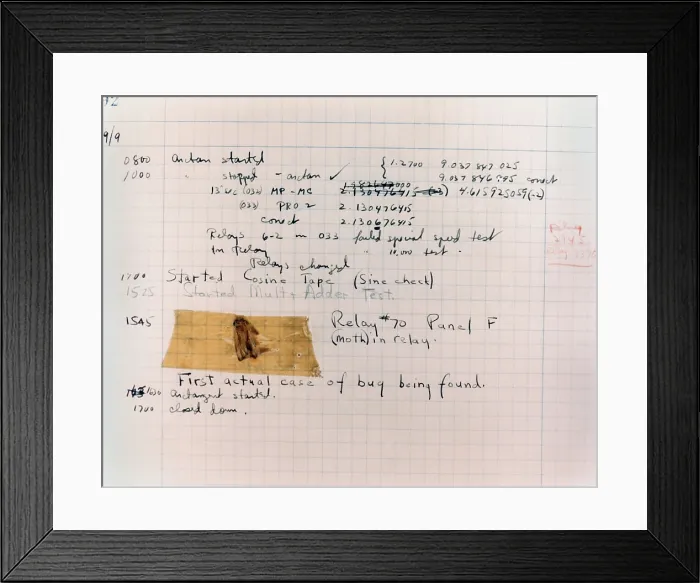 92
9/9
0800 Antan started
1000 " stopped - antan ✓ { 1.2700 9.037 847 025
9.037 846 995 conect
13"uc (032) MP - MC 2.130476415 4.615925059(-2)
(033) PRO 2 2.130476415
conect 2.130676415
Relays 6-2 in 033 failed special speed test
In Relay " 10,000 test.
Relay
Relays changed
1700 Started Cosine Tape (Sine check)
1525 Started Mult+Adder Test.
1545 Relay #70 Panel F
(moth) in relay.
First actual case of bug being found.
1630 antangent started.
1700 closed down.